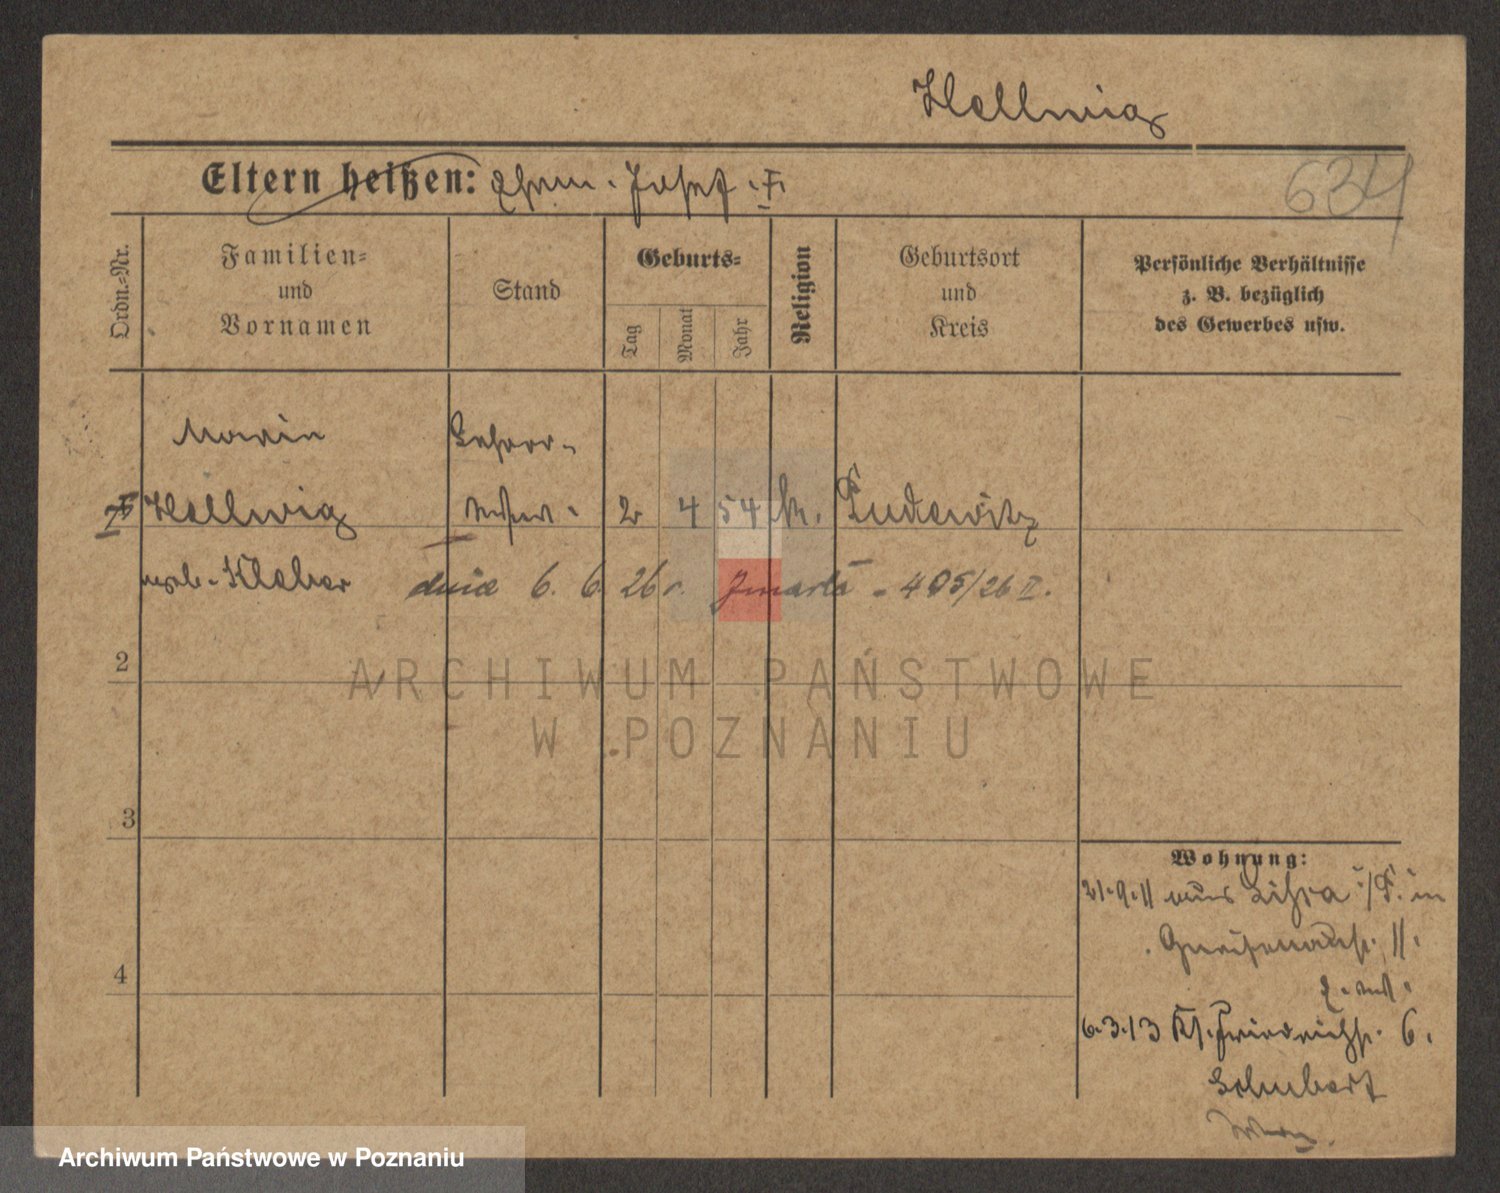 Hellwig
634
Eltern heißen: Ehem. Josef. F.
Ordn.-Nr.
Familien-
und
Vornamen
Stand
Geburts-
Tag
Monat
Jahr
Religion
Geburtsort
und
Kreis
Persönliche Verhältnisse
z. B. bezüglich
des Gewerbes usw.
Marie Lehrer-
Hellwig 2 4 54 k. Pudewitz
geb. Kleber dnia 6. 6. 26 r. Zmarła - 405/26 II.
2
3
4
Wohnung:
21.9.11 aus Lissa i/P. in
Gneisenaustr. 11.
6.3.13 Kl. Friedrichstr. 6.
Schubert
ARCHIWUM PAŃSTWOWE
W POZNANIU
Archiwum Państwowe w Poznaniu